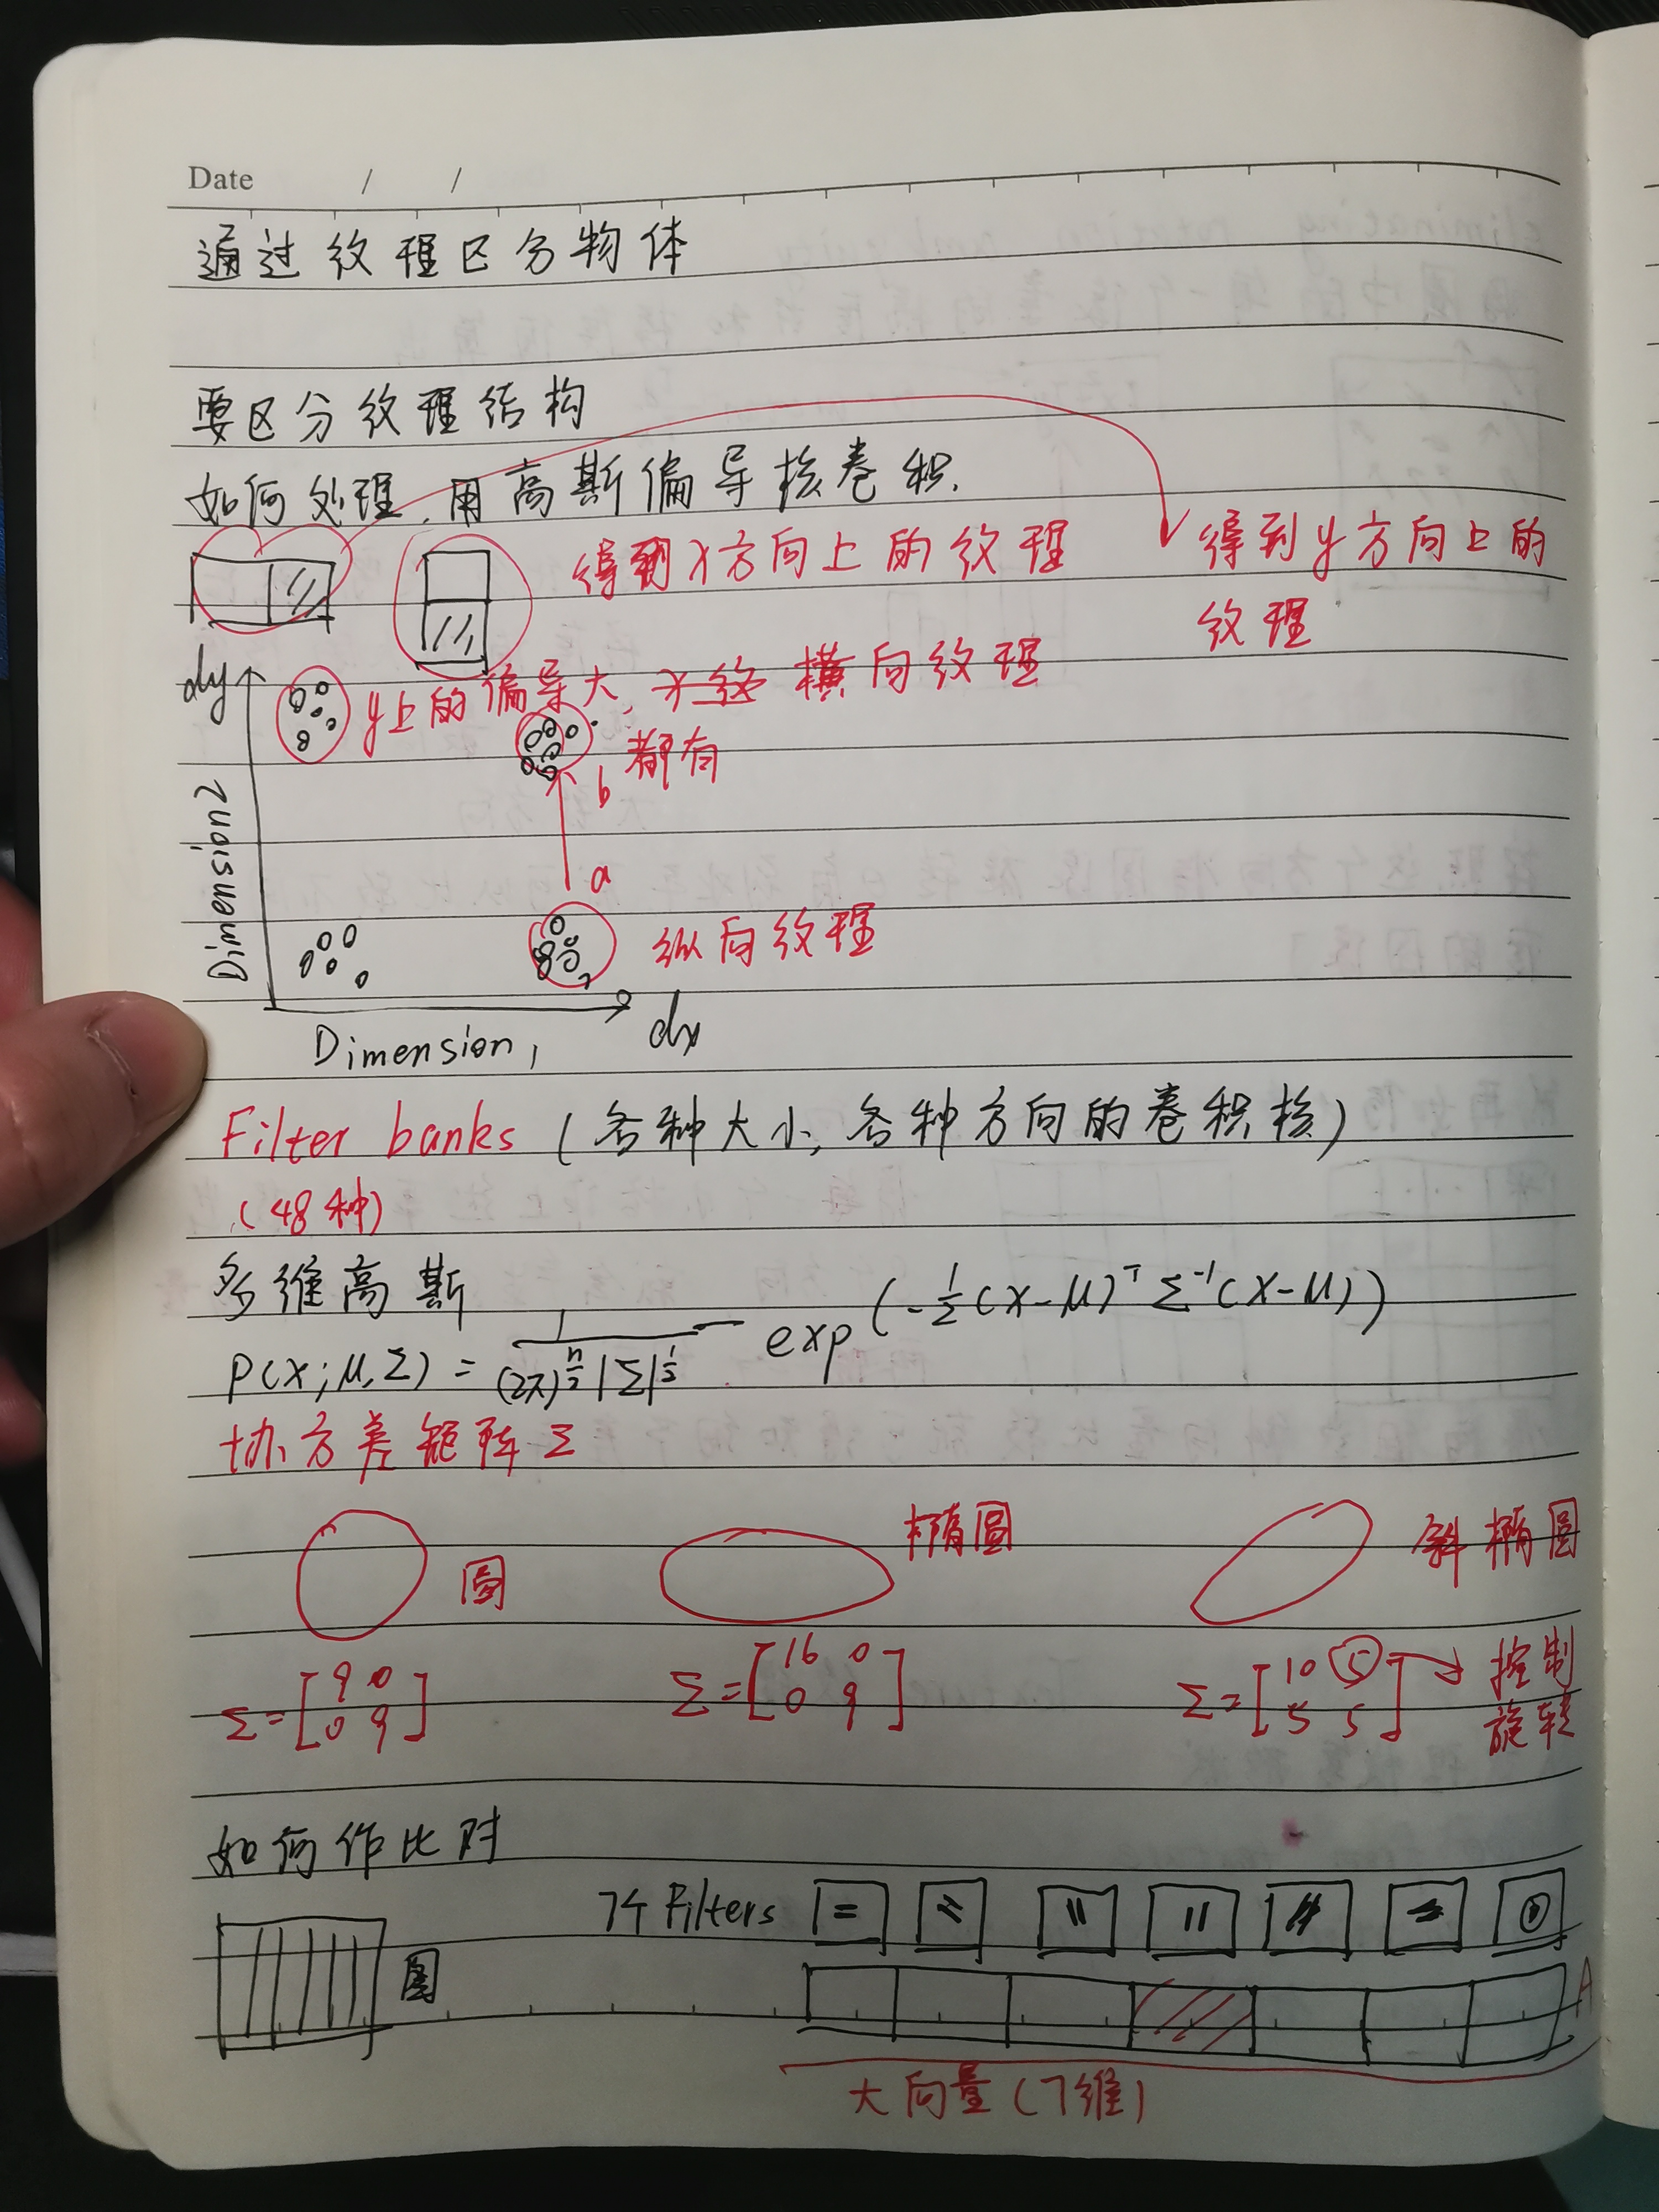 Date / /
通过纹理区分物体
要区分纹理结构
如何处理,用高斯偏导核卷积.
得到x方向上的纹理
得到y方向上的
纹理
dy
y上的偏导大, 横向纹理
都有
b
a
Dimension2
纵向纹理
Dimension1
dx
Filter banks (各种大小,各种方向的卷积核)
(48种)
多维高斯
P(x;μ,Σ) = 1/((2π)^(n/2)|Σ|^(1/2)) exp(-1/2(x-μ)ᵀΣ⁻¹(x-μ))
协方差矩阵Σ
圆 椭圆 斜椭圆
Σ=[9 0
0 9]
Σ=[16 0
0 9]
Σ=[10 5
5 5]
控制
旋转
如何作比对
7个Filters
图
A
大向量(7维)